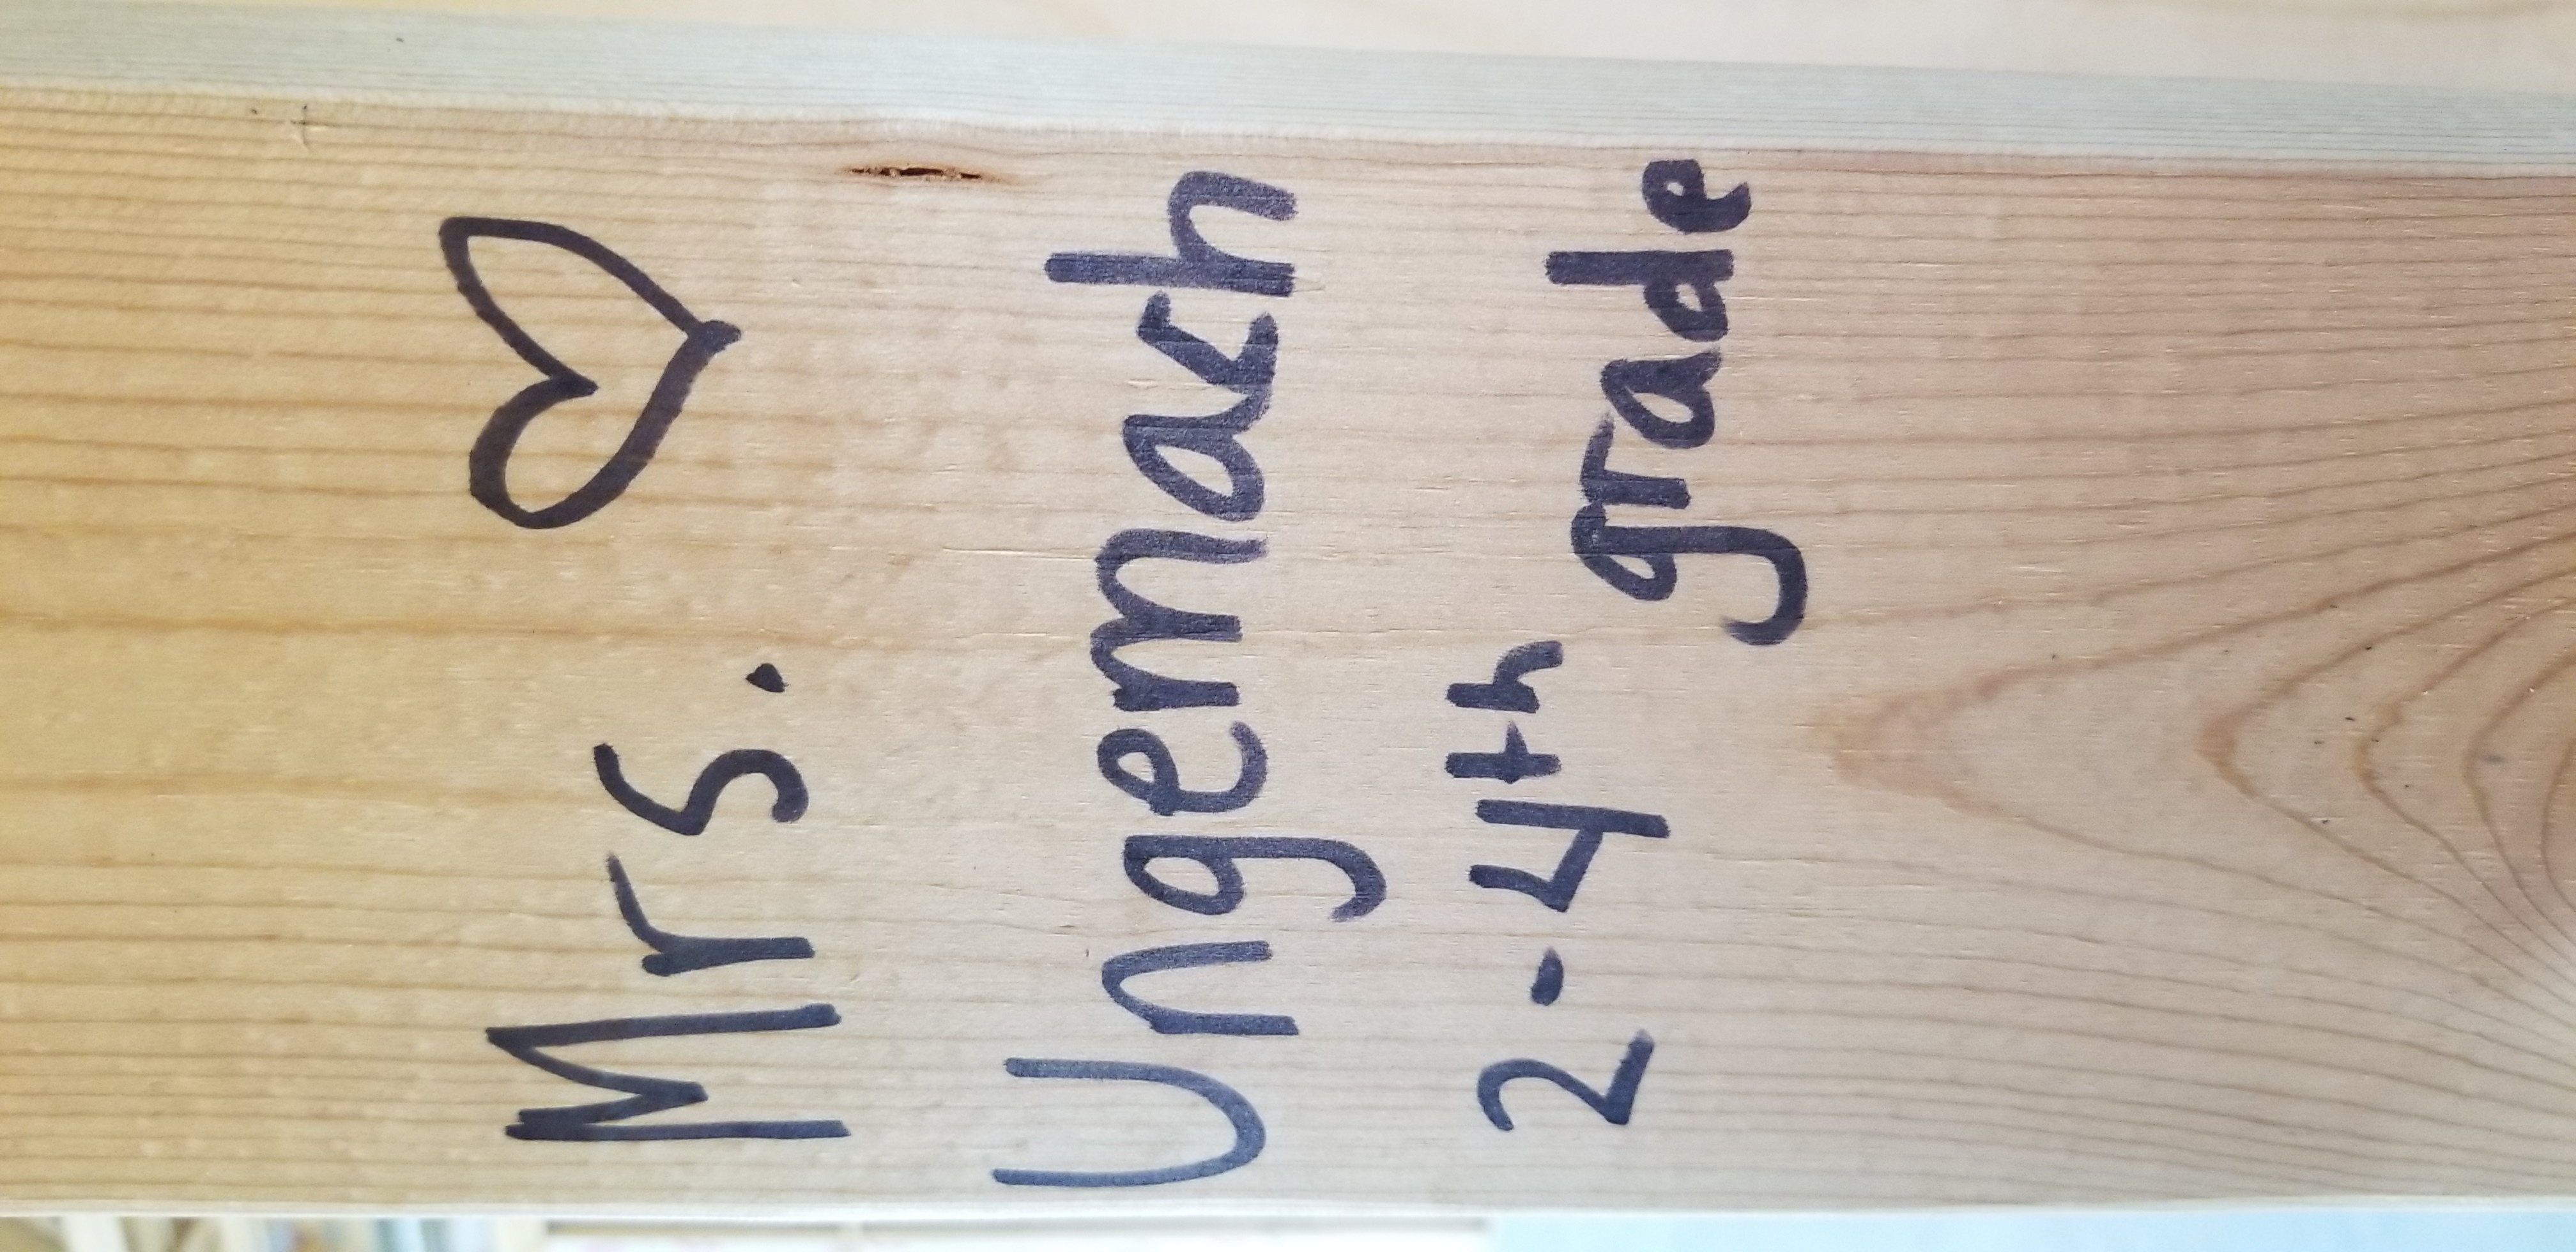 Mrs. ♡
Ungemach
2-4th grade